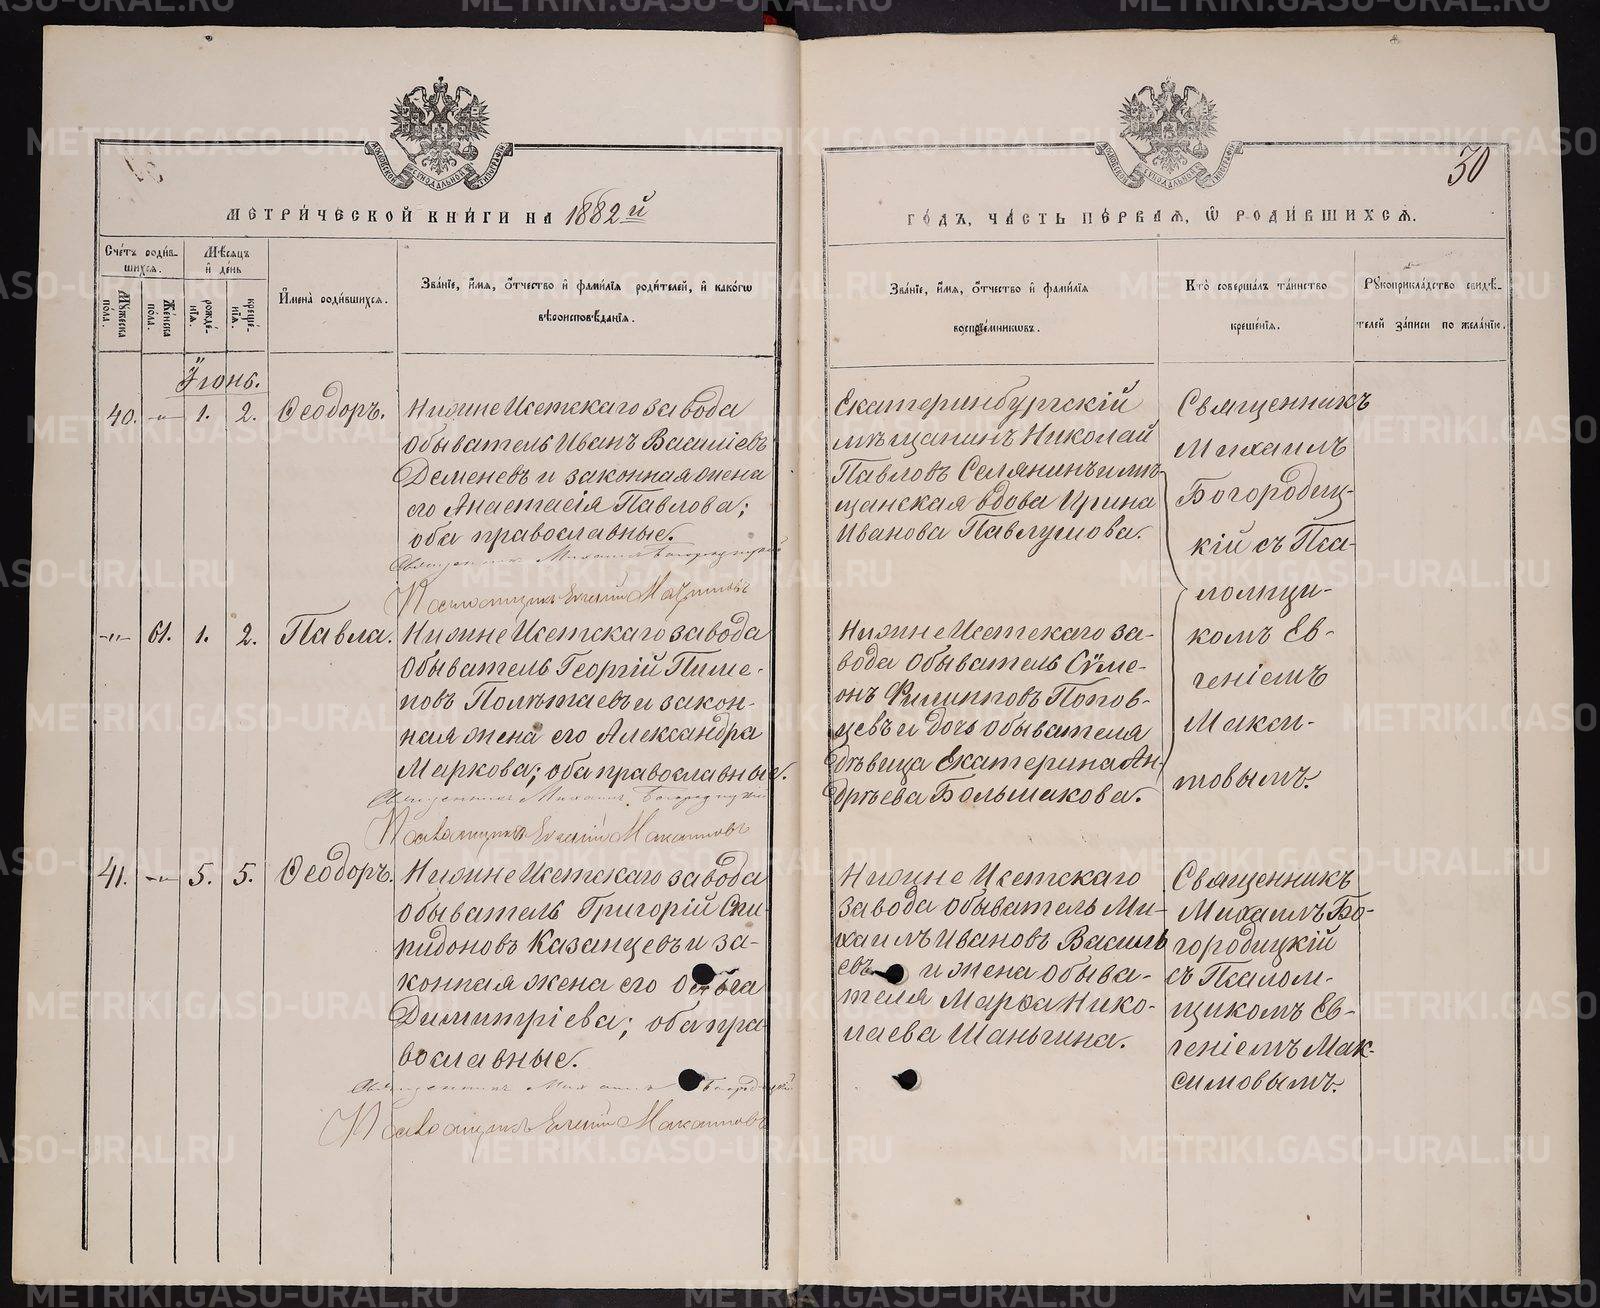 МЕТРИЧЕСКОЙ КНИГИ НА 1882 й
ГОДЪ, ЧАСТЬ ПЕРВАЯ, Ѡ РОДИВШИХСЯ.
30
Счетъ родив-
шихся.
Мужеска
пола.
Женска
пола.
Мѣсяцъ
и день
рожде-
нія.
креще-
нія.
Имена родившихся.
Званіе, имя, отчество и фамилія родителей, и какогѡ
вѣроисповѣданія.
Званіе, имя, отчество и фамилія
воспріемниковъ.
Кто совершалъ таинство
крещенія.
Рукоприкладство свидѣ-
телей записи по желанію.
Іюнь.
40. -"- 1. 2. Ѳеодоръ.
Нижне Исетскаго завода
обыватель Иванъ Василіевъ
Деменевъ и законная жена
его Анастасія Павлова;
оба православные.
Священникъ Михаилъ Богородицкій
Псаломщикъ Евгеній Максимовъ
Екатеринбургскій
мѣщанинъ Николай
Павловъ Селянинъ и мѣ-
щанская вдова Ирина
Иванова Павлушова.
Священникъ
Михаилъ
Богородиц-
кій съ Пса-
ломщи-
комъ Ев-
геніемъ
Макси-
мовымъ.
-"- 61. 1. 2. Павла.
Нижне Исетскаго завода
обыватель Георгій Пиме-
новъ Полѣтаевъ и закон-
ная жена его Александра
Маркова; оба православные.
Священникъ Михаилъ Богородицкій
Псаломщикъ Евгеній Максимовъ
Нижне Исетскаго за-
вода обыватель Сѵме-
онъ Филипповъ Попов-
цевъ и дочь обывателя
дѣвица Екатерина Ан-
дрѣева Большакова.
41. -"- 5. 5. Ѳеодоръ.
Нижне Исетскаго завода
обыватель Григорій Спи-
ридоновъ Казанцевъ и за-
конная жена его Ольга
Димитріева; оба пра-
вославные.
Священникъ Михаилъ Богородицкій
Псаломщикъ Евгеній Максимовъ
Нижне Исетскаго
завода обыватель Ми-
хаилъ Ивановъ Василь
евъ и жена обыва-
теля Марѳа Нико-
лаева Шаньгина.
Священникъ
Михаилъ Бо-
городицкій
съ Псалом-
щикомъ Ев-
геніемъ Мак-
симовымъ.
METRIKI.GASO-URAL.RU